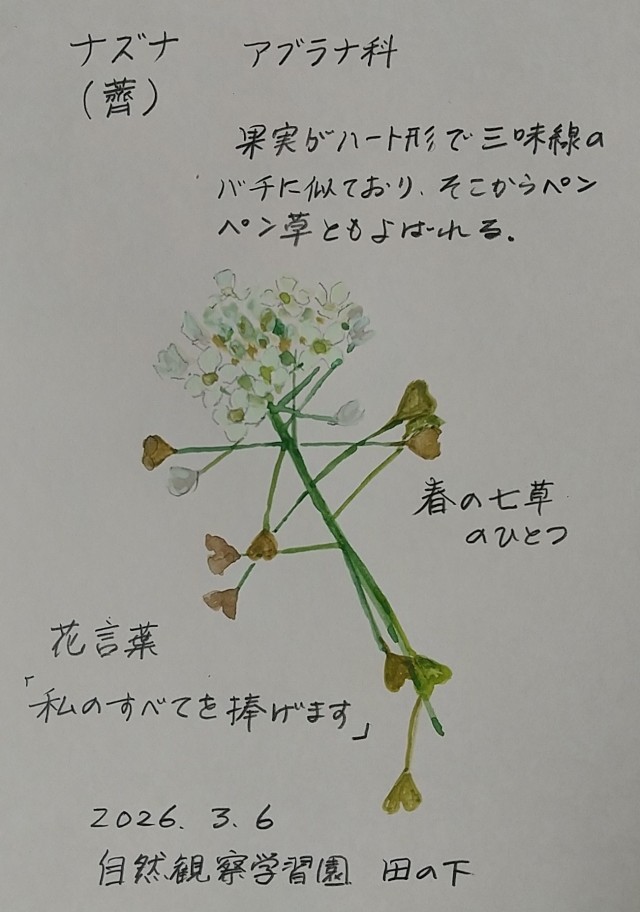 ナズナ アブラナ科
(薺)
果実がハート形で三味線の
バチに似ており、そこからペン
ペン草ともよばれる。
春の七草
のひとつ
花言葉
「私のすべてを捧げます」
2026. 3. 6
自然観察学習園 田の下